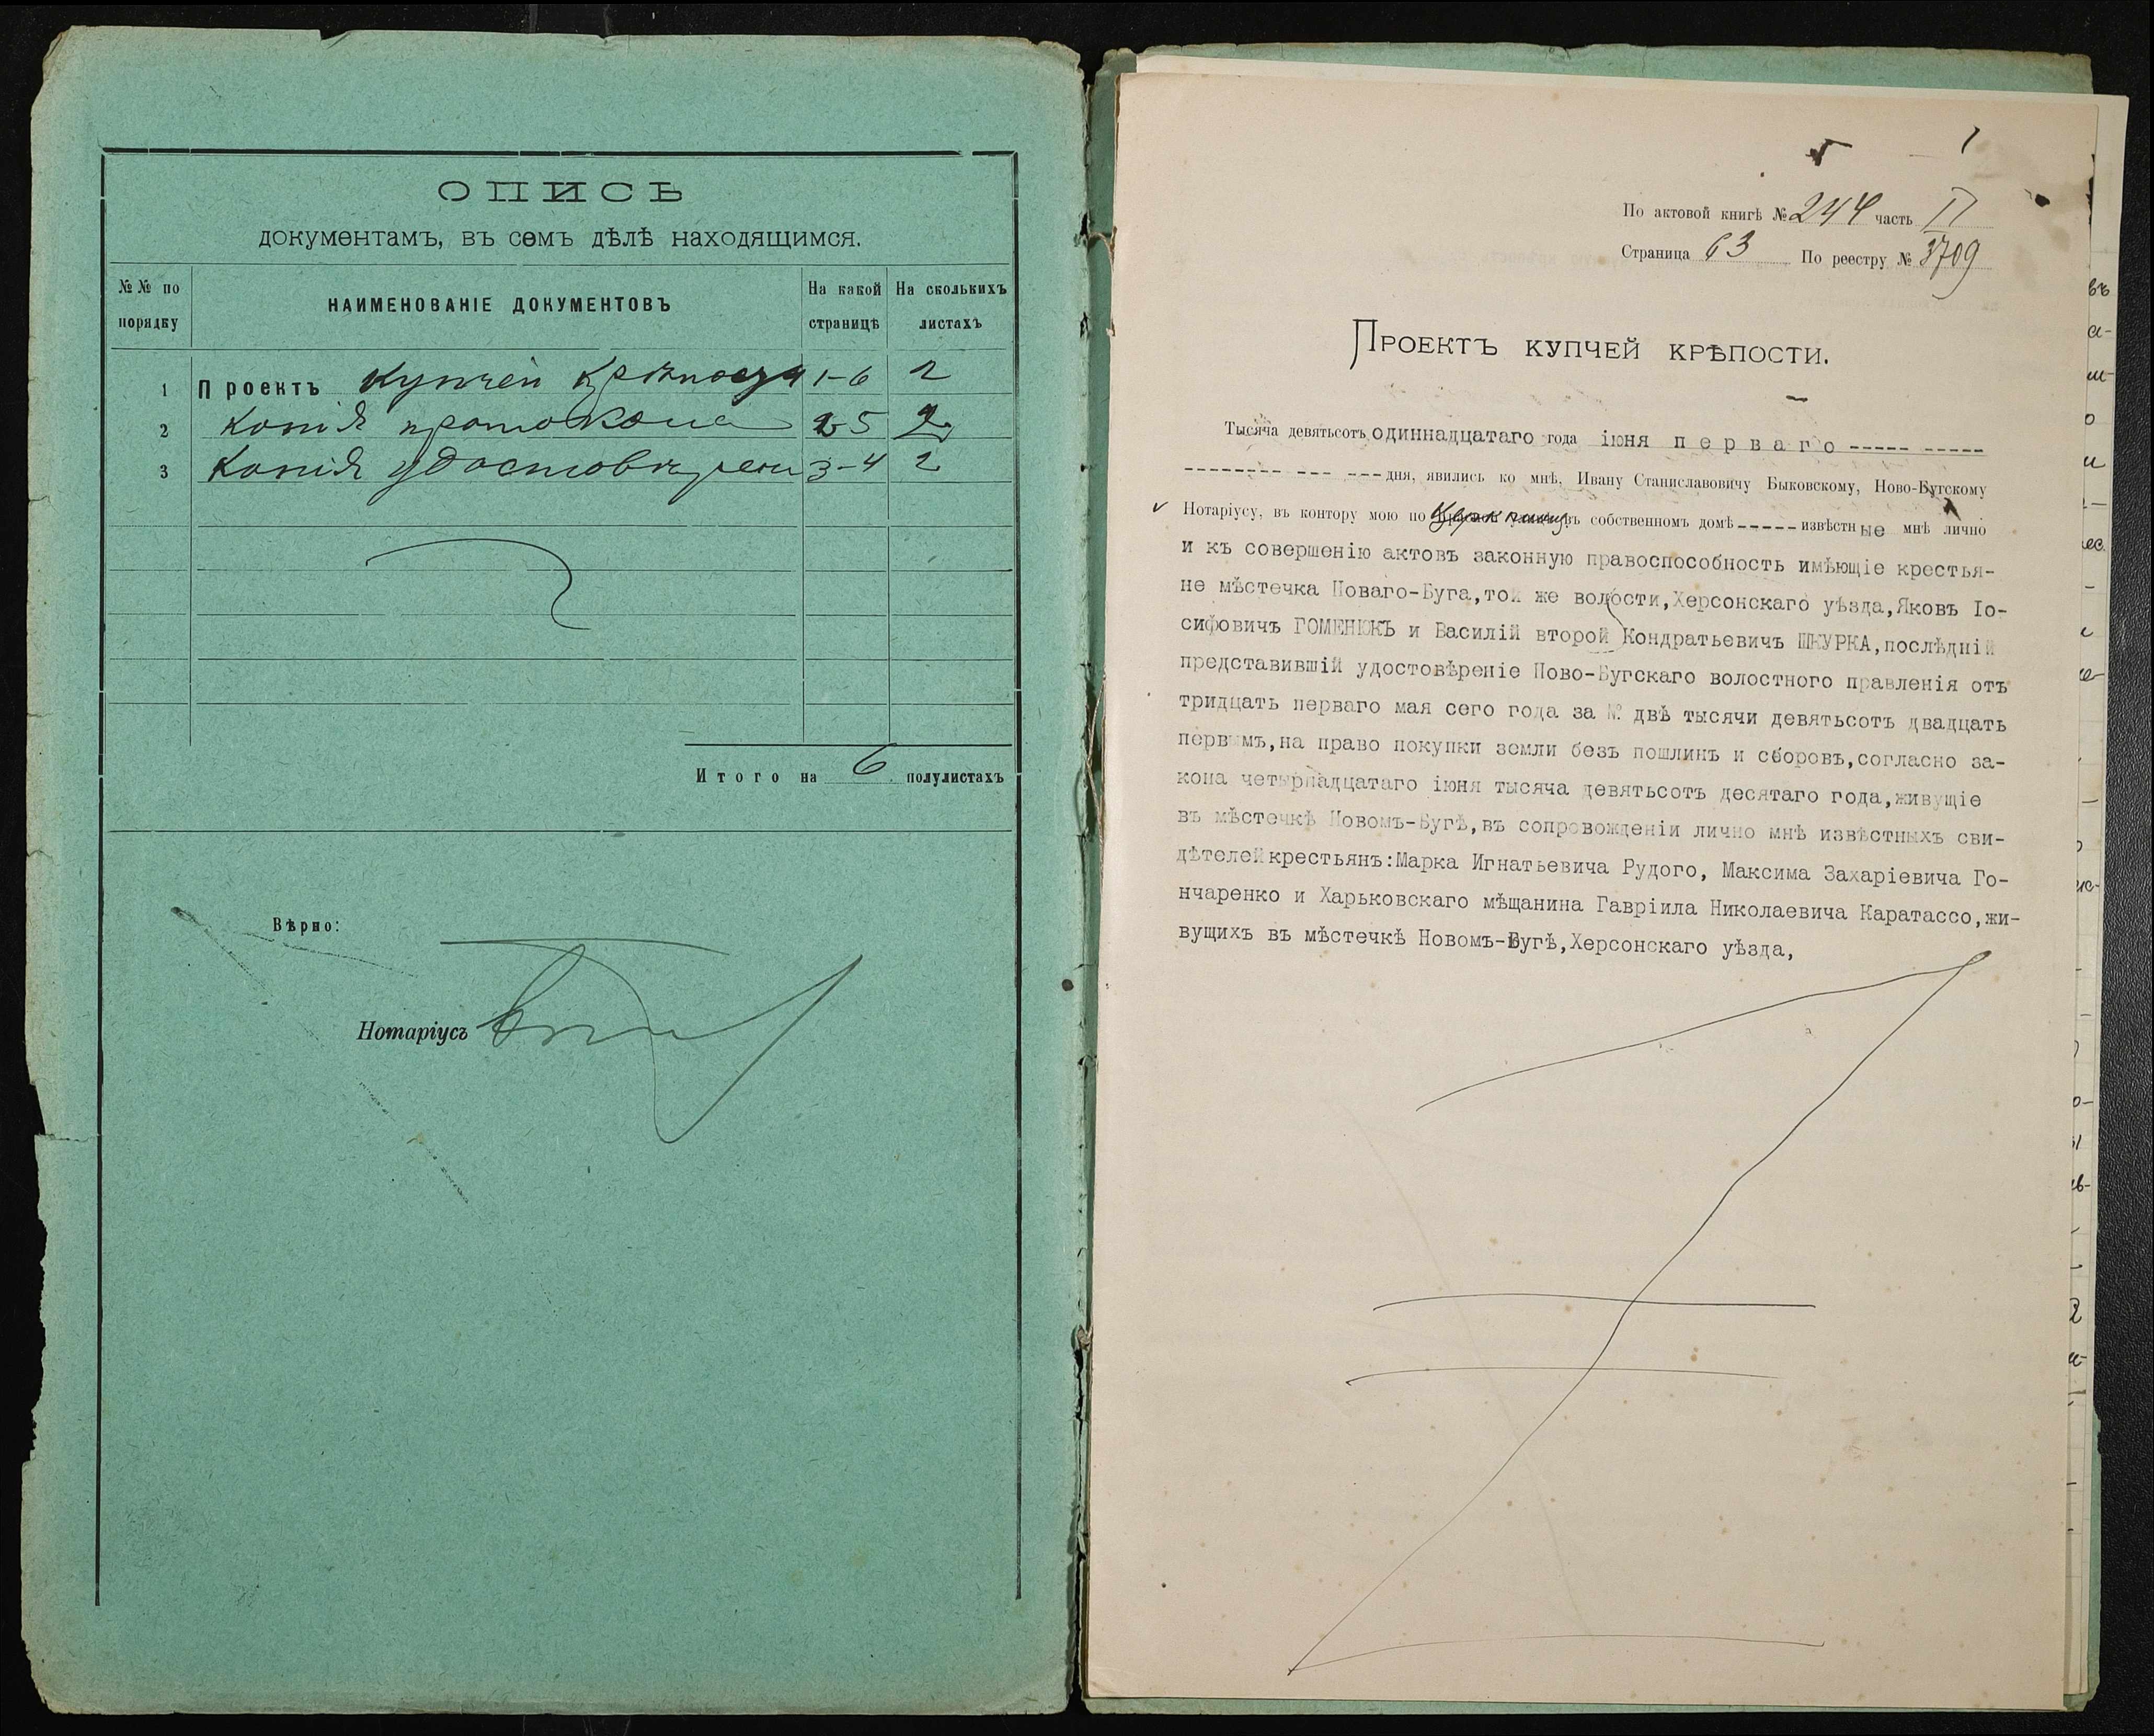 ОПИСЬ
документамъ, въ семъ дѣлѣ находящимся.
№№ по порядку
НАИМЕНОВАНІЕ ДОКУМЕНТОВЪ
На какой страницѣ
На сколькихъ листахъ
1 Проектъ купчей крѣпости 1-6 2
2 Копія протокола 2-5 2
3 Копія удостовѣрени 3-4 2
Итого на 6 полулистахъ
Вѣрно:
Нотаріусъ
1
По актовой книгѣ № 244 часть II
Страница 63 По реестру № 3709
Проектъ купчей крѣпости.
Тысяча девятьсотъ одиннадцатаго года іюня перваго ----- -----
-------- --- --- дня, явились ко мнѣ, Ивану Станиславовичу Быковскому, Ново-Бугскому
Нотаріусу, въ контору мою по въ собственномъ домѣ ----- извѣстные мнѣ лично
и къ совершенію актовъ законную правоспособность имѣющіе крестья-
не мѣстечка Новаго-Буга,той же волости,Херсонскаго уѣзда,Яковъ Іо-
сифовичъ ГОМЕНЮКЪ и Василій второй Кондратьевичъ ШКУРКА,послѣдній
представившій удостовѣреніе Ново-Бугскаго волостного правленія отъ
тридцать перваго мая сего года за № двѣ тысячи девятьсотъ двадцать
первымъ,на право покупки земли безъ пошлинъ и сборовъ,согласно за-
кона четырнадцатаго іюня тысяча девятьсотъ десятаго года,живущіе
въ мѣстечкѣ Новомъ-Бугѣ,въ сопровожденіи лично мнѣ извѣстныхъ сви-
дѣтелей крестьянъ:Марка Игнатьевича Рудого, Максима Захаріевича Го-
нчаренко и Харьковскаго мѣщанина Гавріила Николаевича Каратассо,жи-
вущихъ въ мѣстечкѣ Новомъ-Бугѣ,Херсонскаго уѣзда,